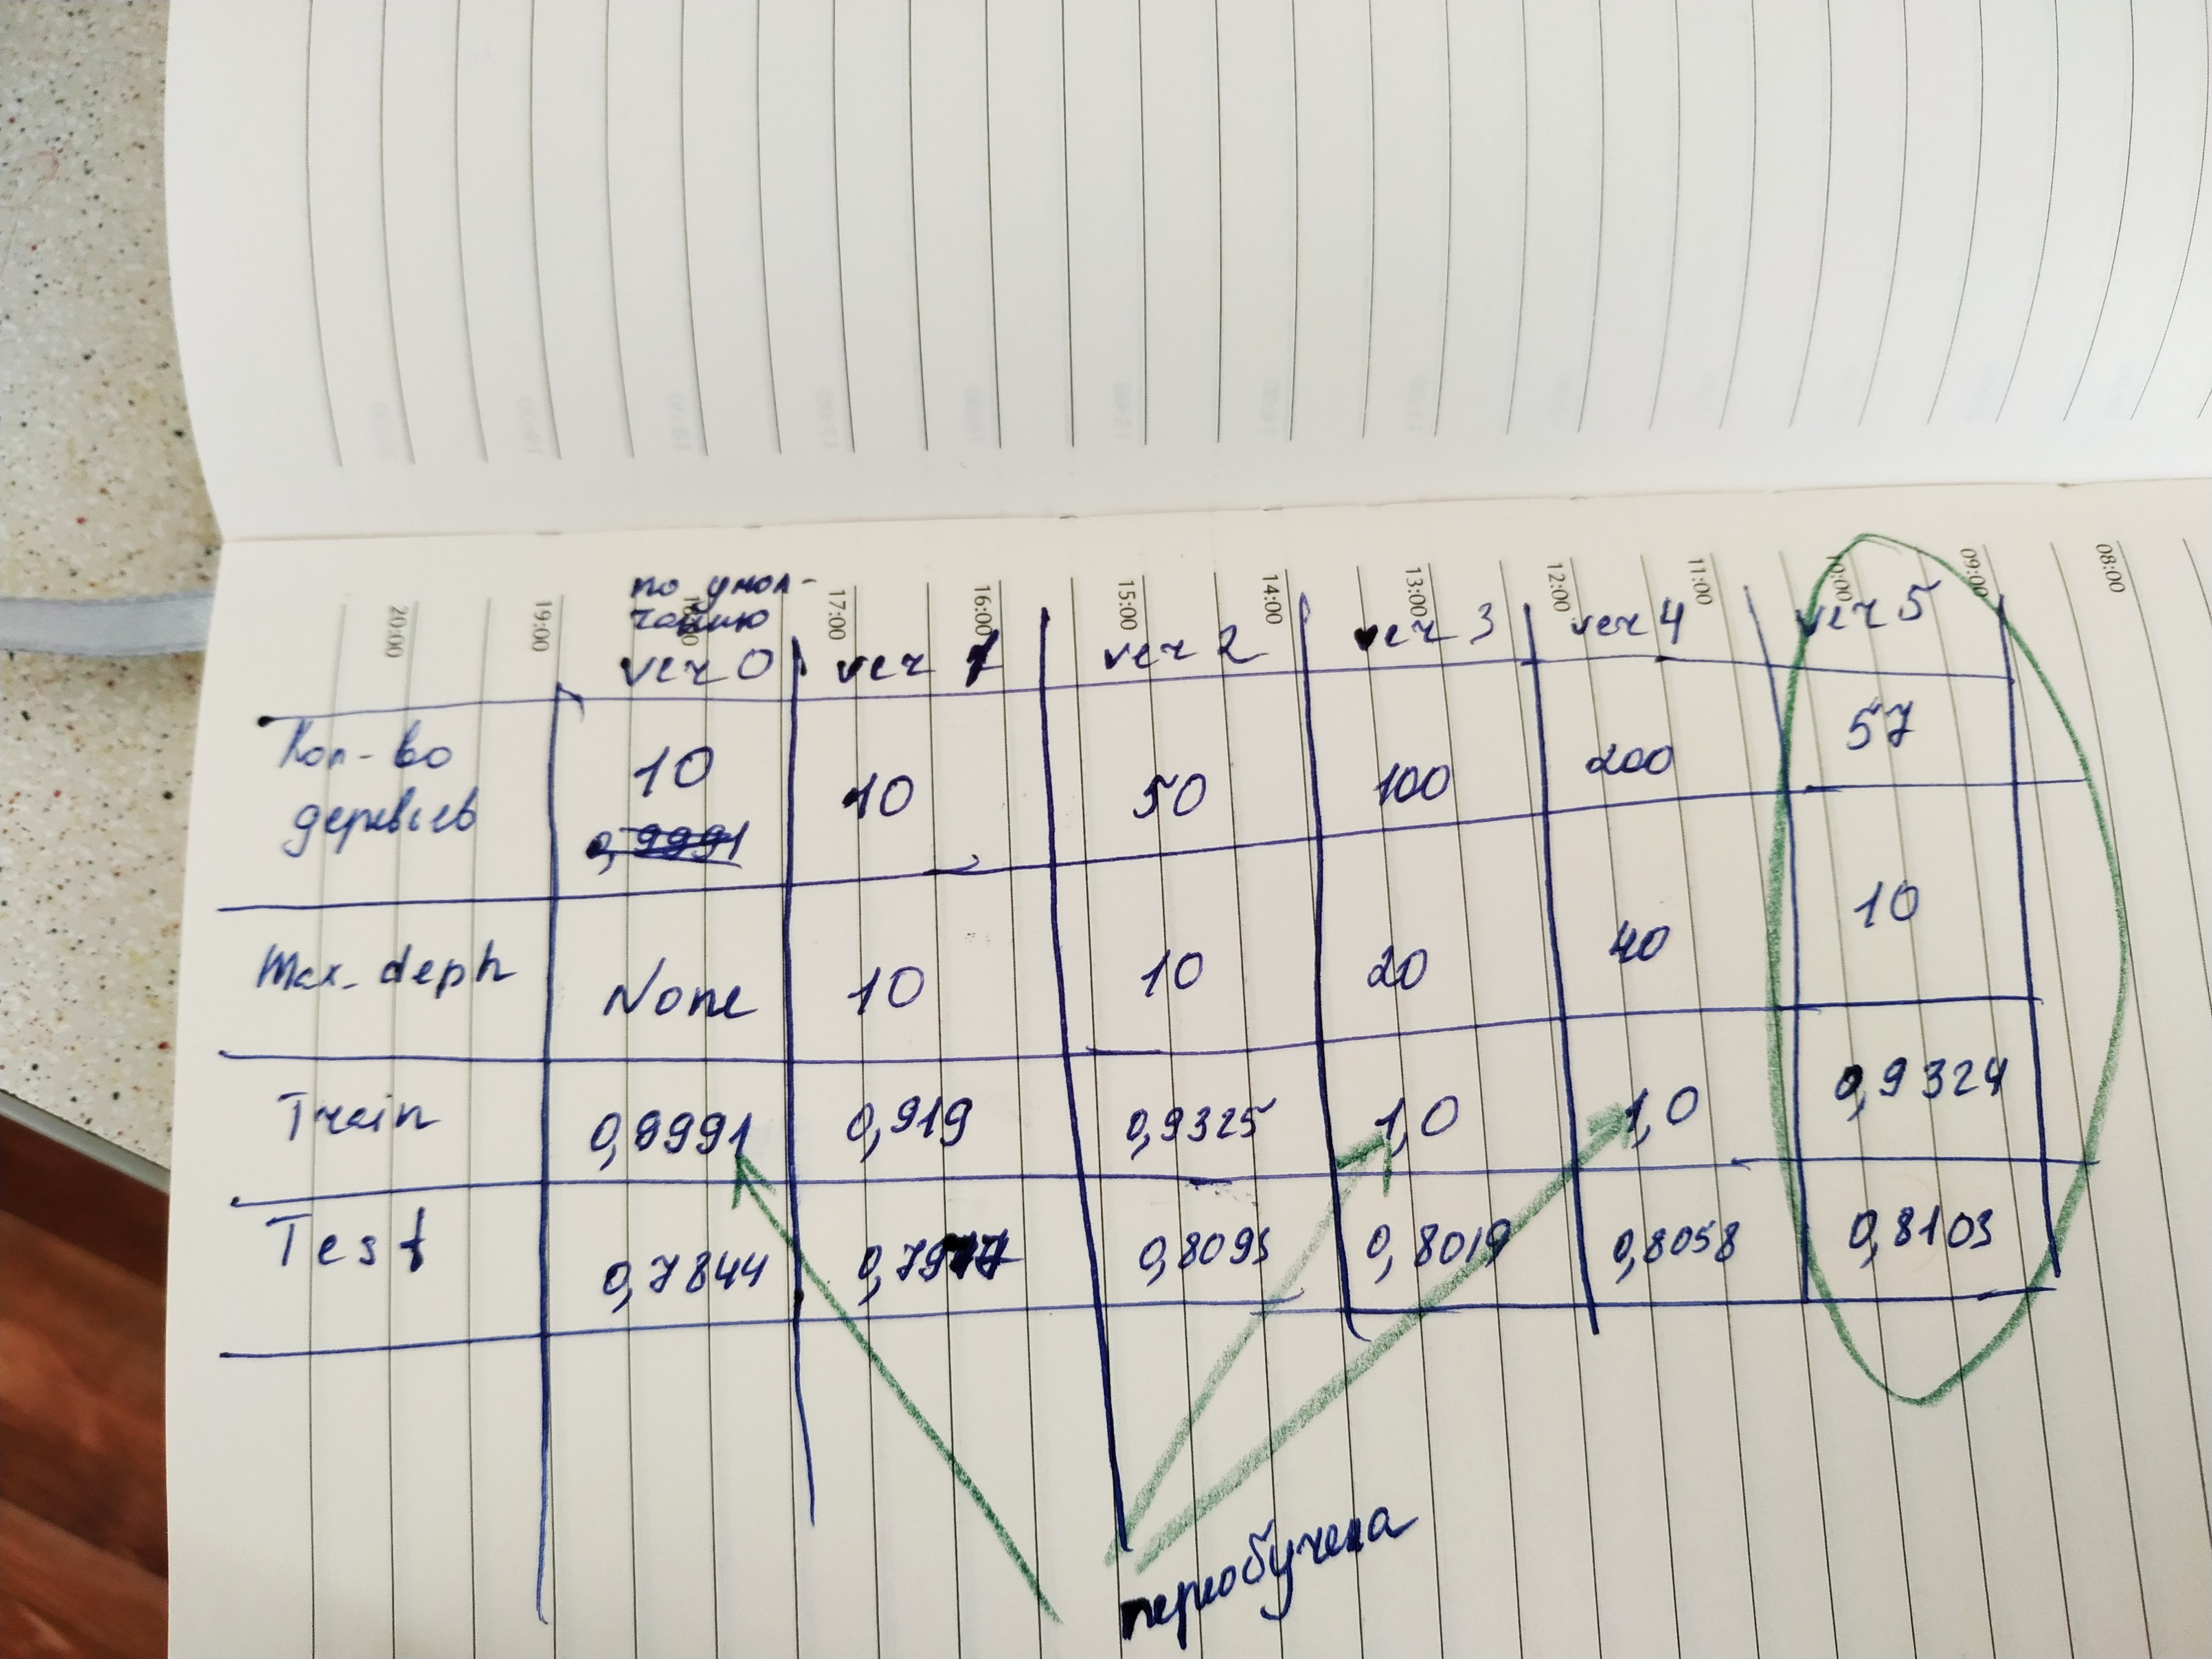 20:00 19:00 17:00 16:00 15:00 14:00 13:00 12:00 11:00 10:00 09:00 08:00
по умол-
чанию
ver 0 ver 1 ver 2 ver 3 ver 4 ver 5
Кол-во
деревьев 10 10 50 100 200 57
0,9991
Max_deph None 10 10 20 40 10
Train 0,9991 0,919 0,9325 1,0 1,0 0,9324
Test 0,7844 0,8095 0,8019 0,8058 0,8103
переобучена